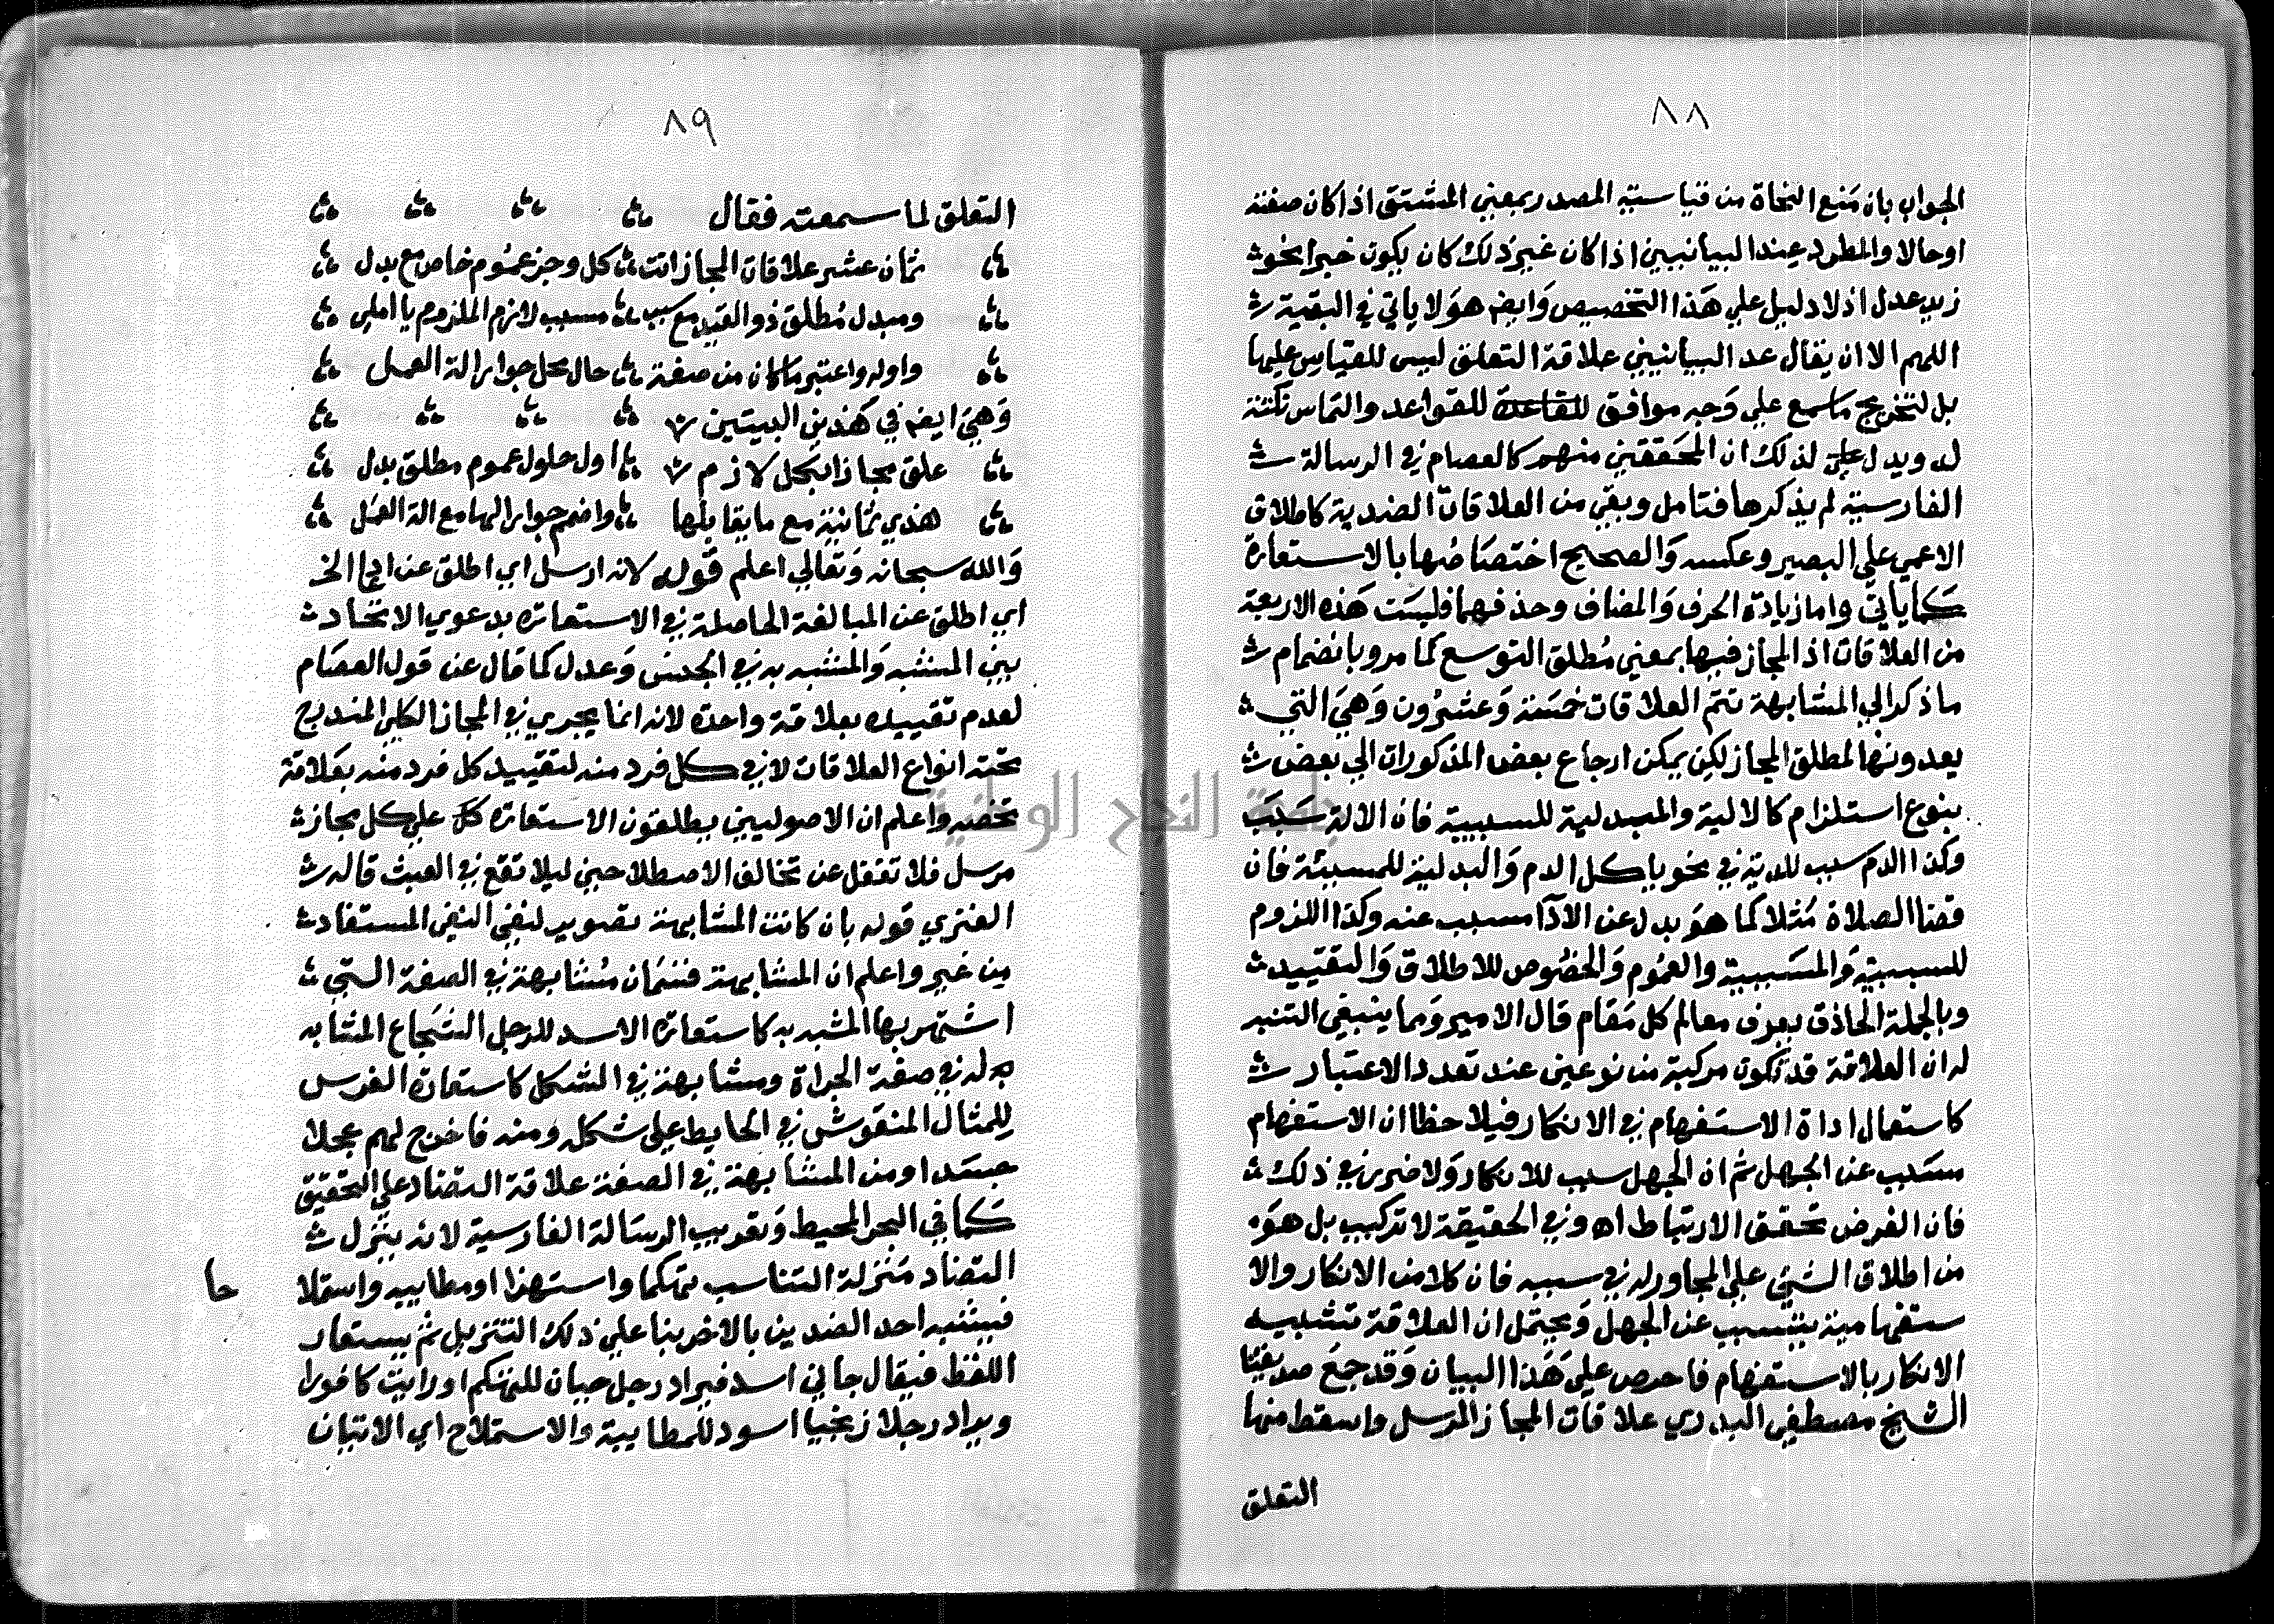 ٨٨
الجواب بان منع النحاة من قياسية المصدر بمعني المشتق اذا كان صفة
او حالا والمطرد عند البيانيين اذا كان غير ذلك كان يكون خبرا نحو
زيد عدل اذ لا دليل علي هذا التخصيص وايضه هو لا ياتي في البقية
اللهم الا ان يقال عد البيانيين علاقة التعلق ليس للقياس عليها
بل لتخريج ما سمع علي وجه موافق للقواعد والتماس نكتة
له ويدل علي لذلك ان المحققين منهم كالعصام في الرسالة
الفارسية لم يذكرها فتامل وبقي من العلاقات الضدية كاطلاق
الاعمي علي البصير وعكسه والصحيح اختصاصها بالاستعارة
كما ياتي واما زيادة الحرف والمضاف وحذفهما فليست هذه الاربعة
من العلاقات اذ المجاز فيها بمعني مطلق التوسع كما مر وبانضمام
ما ذكر الي المشابهة تتم العلاقات خمسة وعشرون وهي التي
يعدونها لمطلق المجاز لكن يمكن ارجاع بعض المذكورات الي بعض
بنوع استلزام كالالية والمبدلية للسببية فان الالة سبب
وكذا الدم سبب للدية في نحو ياكل الدم والبدلية للمسببية فان
قضا الصلاة مثلا كما هو بدل عن الادا مسبب عنه وكذا اللزوم
للسببية والمسببية والعموم والخصوص للاطلاق والتقييد
وبالجملة الحاذق يعرف معالم كل مقام قال الامير ومما ينبغي التنبه
له ان العلاقة قد تكون مركبة من نوعين عند تعدد الاعتبار
كاستعمال اداة الاستفهام في الانكار فيلاحظ ان الاستفهام
مسبب عن الجهل ثم ان الجهل سبب للانكار ولا ضرر في ذلك
فان الغرض تحقق الارتباط اه وفي الحقيقة لا تركيب بل هو
من اطلاق الشي علي المجاور له في سببه فان كلا من الانكار والا
ستفهامية يتسبب عن الجهل ويحتمل ان العلاقة تشبيه
الانكار بالاستفهام فاحرص علي هذا البيان وقد جمع صديقنا
الشيخ مصطفي البدري علاقات المجاز المرسل واسقط منها
التعلق
٨٩
التعلق لما سمعته فقال
ثمان عشر علاقات المجاز اتت كل وجز عموم خاص مع بدل
ومبدل مطلق ذو القيد مع سبب مسبب لازم الملزوم يا املي
واوله واعتبر ما كان من صفة حال محل جوار الة العمل
وهي ايضه في هذين البيتين
علق مجازا بكل لازم اول حلول عموم مطلق بدل
هذي ثمانية مع ما يقابلها واضمم جوار الها مع الة العمل
والله سبحانه وتعالي اعلم قوله لانه ارسل اي اطلق عن الي الخ
اي اطلق عن المبالغة الحاصلة في الاستعارة بدعوي الاتحاد
بين المشبه والمشبه به في الجنس وعدل كما قال عن قول العصام
لعدم تقييده بعلاقة واحدة لانه انما يجري في المجاز الكلي المندرج
تحته انواع العلاقات لا في كل فرد منه لتقييد كل فرد منه بعلاقة
تخصه واعلم ان الاصوليين يطلقون الاستعارة علي كل مجاز
مرسل فلا تغفل عن تخالف الاصطلاحين ليلا تقع في العبث قاله
الفنري قوله بان كانت المشابهة تصوير لنفي النفي المستفاد
من غير واعلم ان المشابهة قسمان مشابهة في الصفة التي
اشتهر بها المشبه به كاستعارة الاسد للرجل الشجاع المشابه
به له في صفة الجراة ومشابهة في الشكل كاستعارة الفرس
للمثال المنقوش في الحايط علي شكله ومنه فاخرج لهم عجلا
جسدا ومن المشابهة في الصفة علاقة التضاد علي التحقيق
كما في البحر المحيط وتعريب الرسالة الفارسية لانه ينزل
التضاد منزلة التناسب تهكما واستهزا او مطايبه واستملا
حا
فيشبه احد الضدين بالاخر بنا علي ذلك التنزيل ثم يستعار
اللفظ فيقال جاني اسد فيراد رجل جبان للتهكم او رايت كافورا
ويراد رجلا زنجيا اسود للمطايبة والاستملاح اي الاتيان